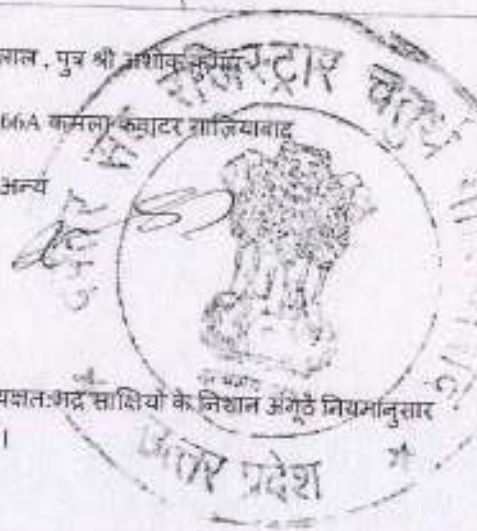 लाल , पुत्र श्री अशोक कुमार
66A कमला क्वाटर गाज़ियाबाद
अन्य
यक्षत:भद्र साक्षियों के निशान अंगूठे नियमानुसार
।
सब रजिस्ट्रार चतुर्थ
उत्तर प्रदेश